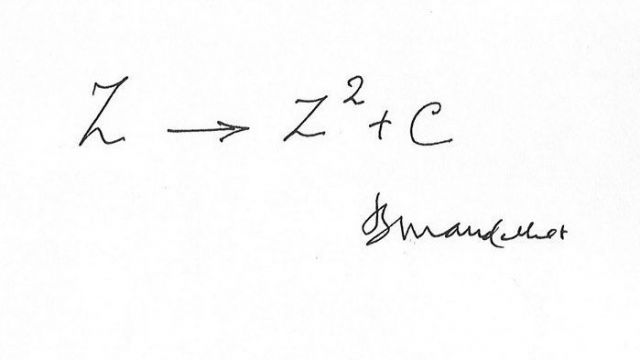 Z → Z² + C
BMandelbrot